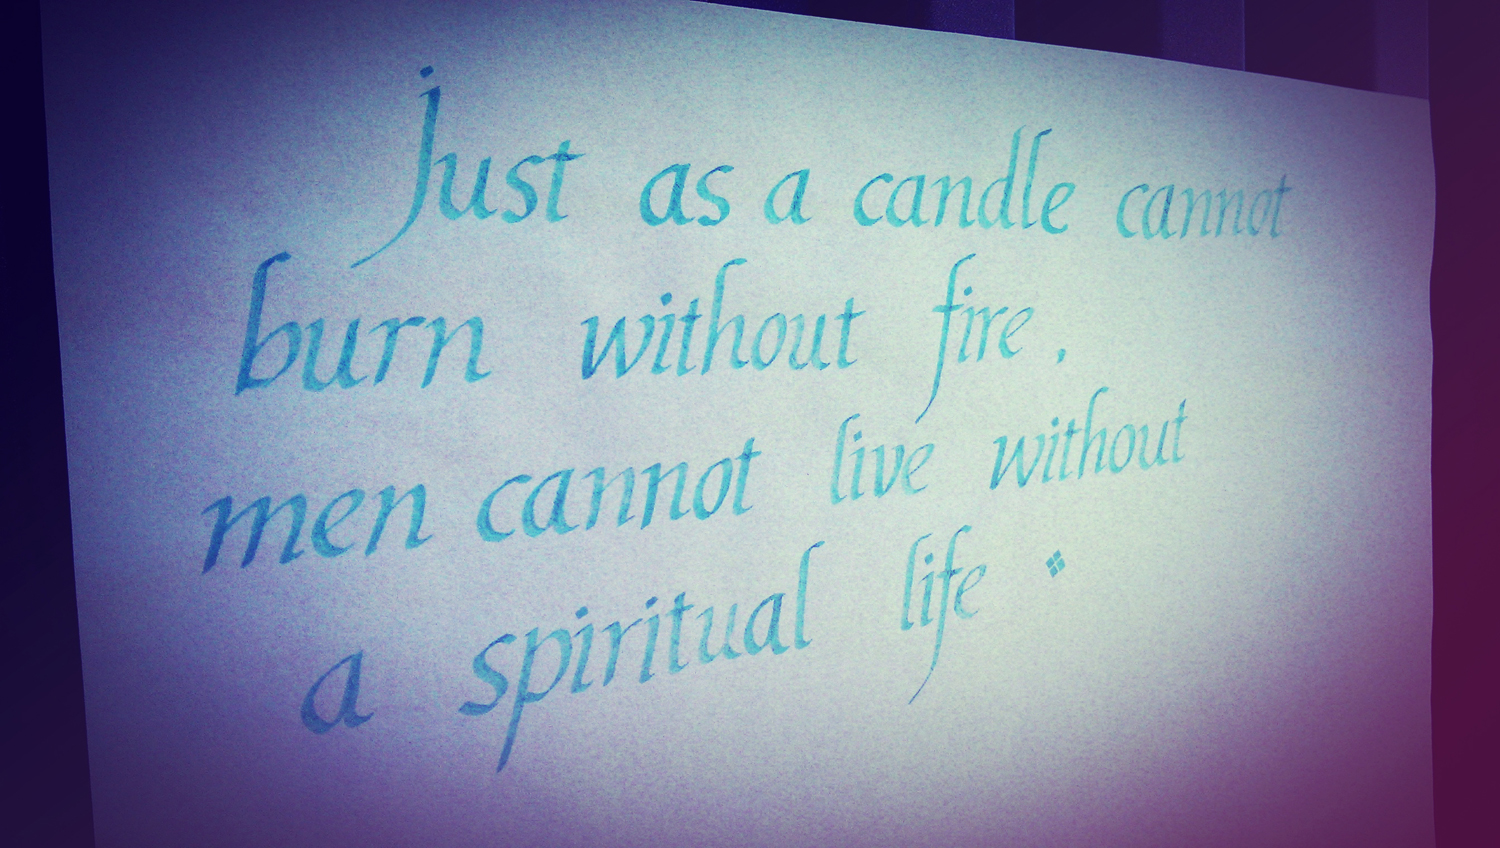 Just as a candle cannot
burn without fire,
men cannot live without
a spiritual life